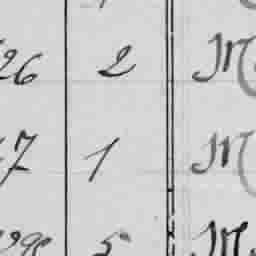 26 2 M
7 1 M
5 M